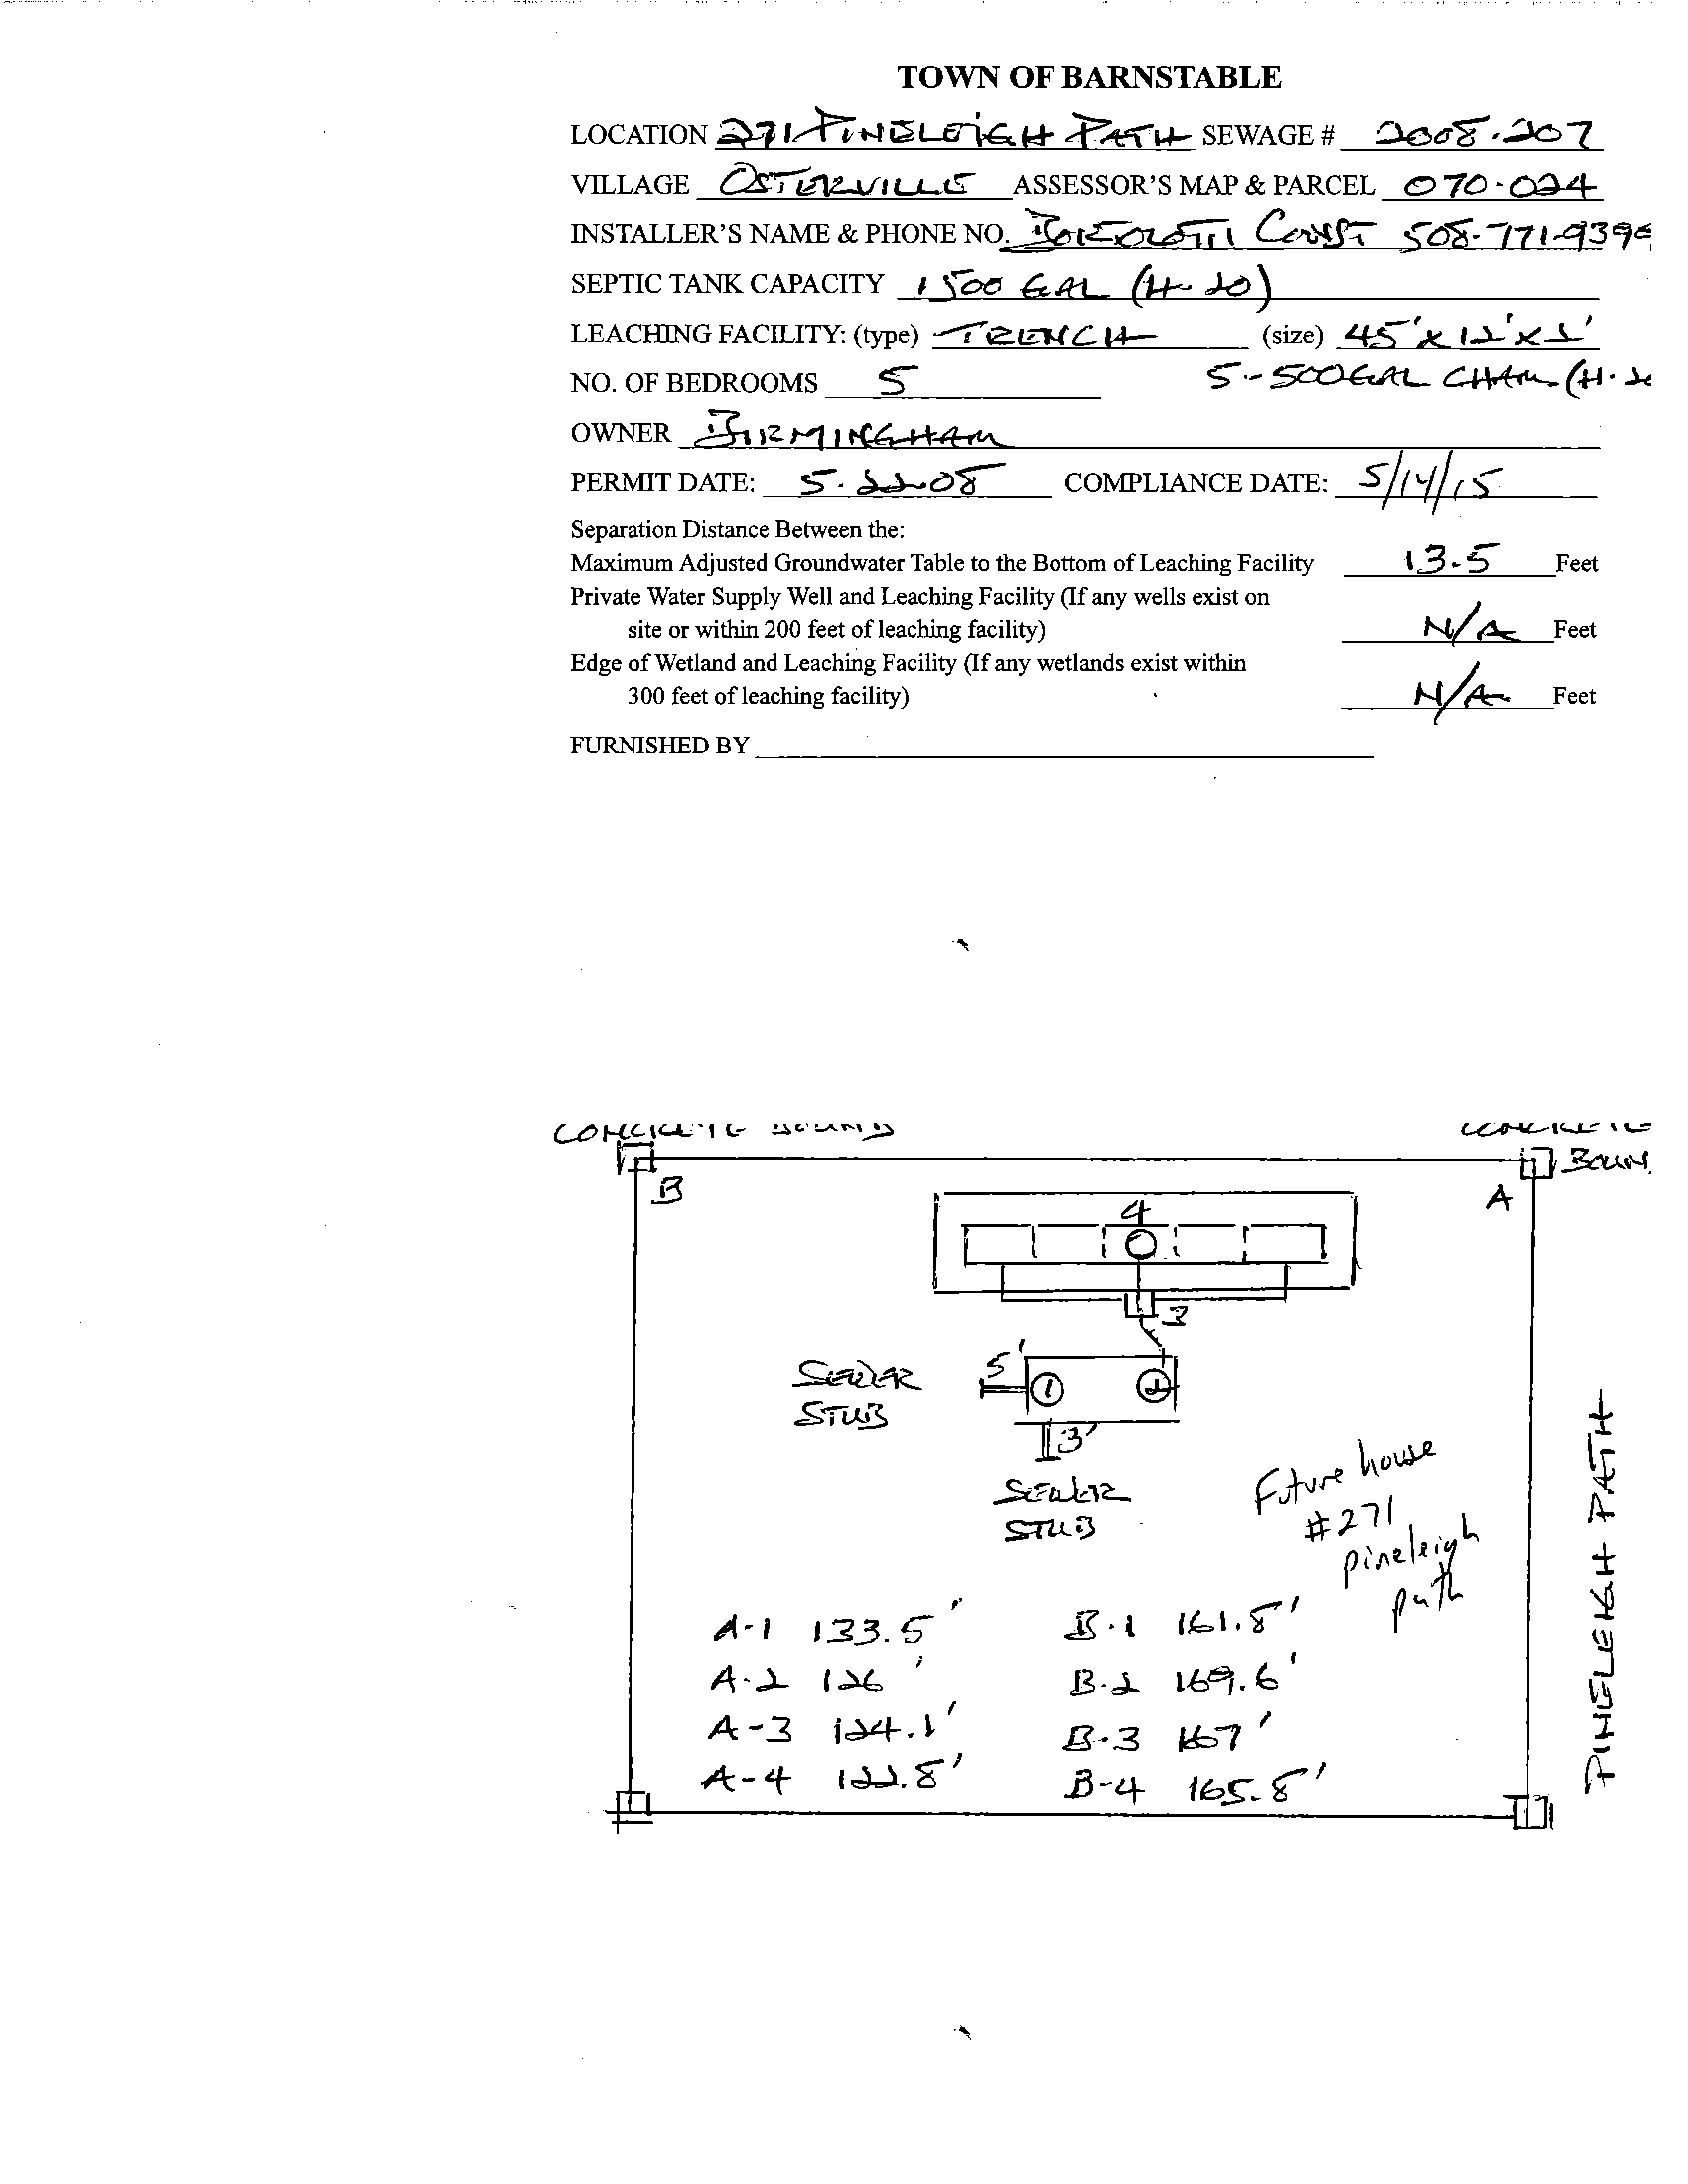 TOWN OF BARNSTABLE
LOCATION 271 PINELEIGH PATH SEWAGE # 2008-207
VILLAGE OSTERVILLE ASSESSOR'S MAP & PARCEL 070-024
INSTALLER'S NAME & PHONE NO. BORTOLOTTI CONST 508-771-939
SEPTIC TANK CAPACITY 1500 GAL (H-20)
LEACHING FACILITY: (type) TRENCH (size) 45'x12'x2'
NO. OF BEDROOMS 5 5-500GAL CHAM (H-20
OWNER BIRMINGHAM
PERMIT DATE: 5-22-08 COMPLIANCE DATE: 5/14/15
Separation Distance Between the:
Maximum Adjusted Groundwater Table to the Bottom of Leaching Facility 13.5 Feet
Private Water Supply Well and Leaching Facility (If any wells exist on
site or within 200 feet of leaching facility) N/A Feet
Edge of Wetland and Leaching Facility (If any wetlands exist within
300 feet of leaching facility) N/A Feet
FURNISHED BY
CONCRETE BOUND CONCRETE
BOUN
B A
4
3
SEWER 5' 1 2
STUB
3'
SEWER
STUB
Future house
#271
pineleigh
path
PINELEIGH PATH
A-1 133.5' B-1 161.8'
A-2 126' B-2 169.6'
A-3 124.1' B-3 167'
A-4 122.8' B-4 165.8'